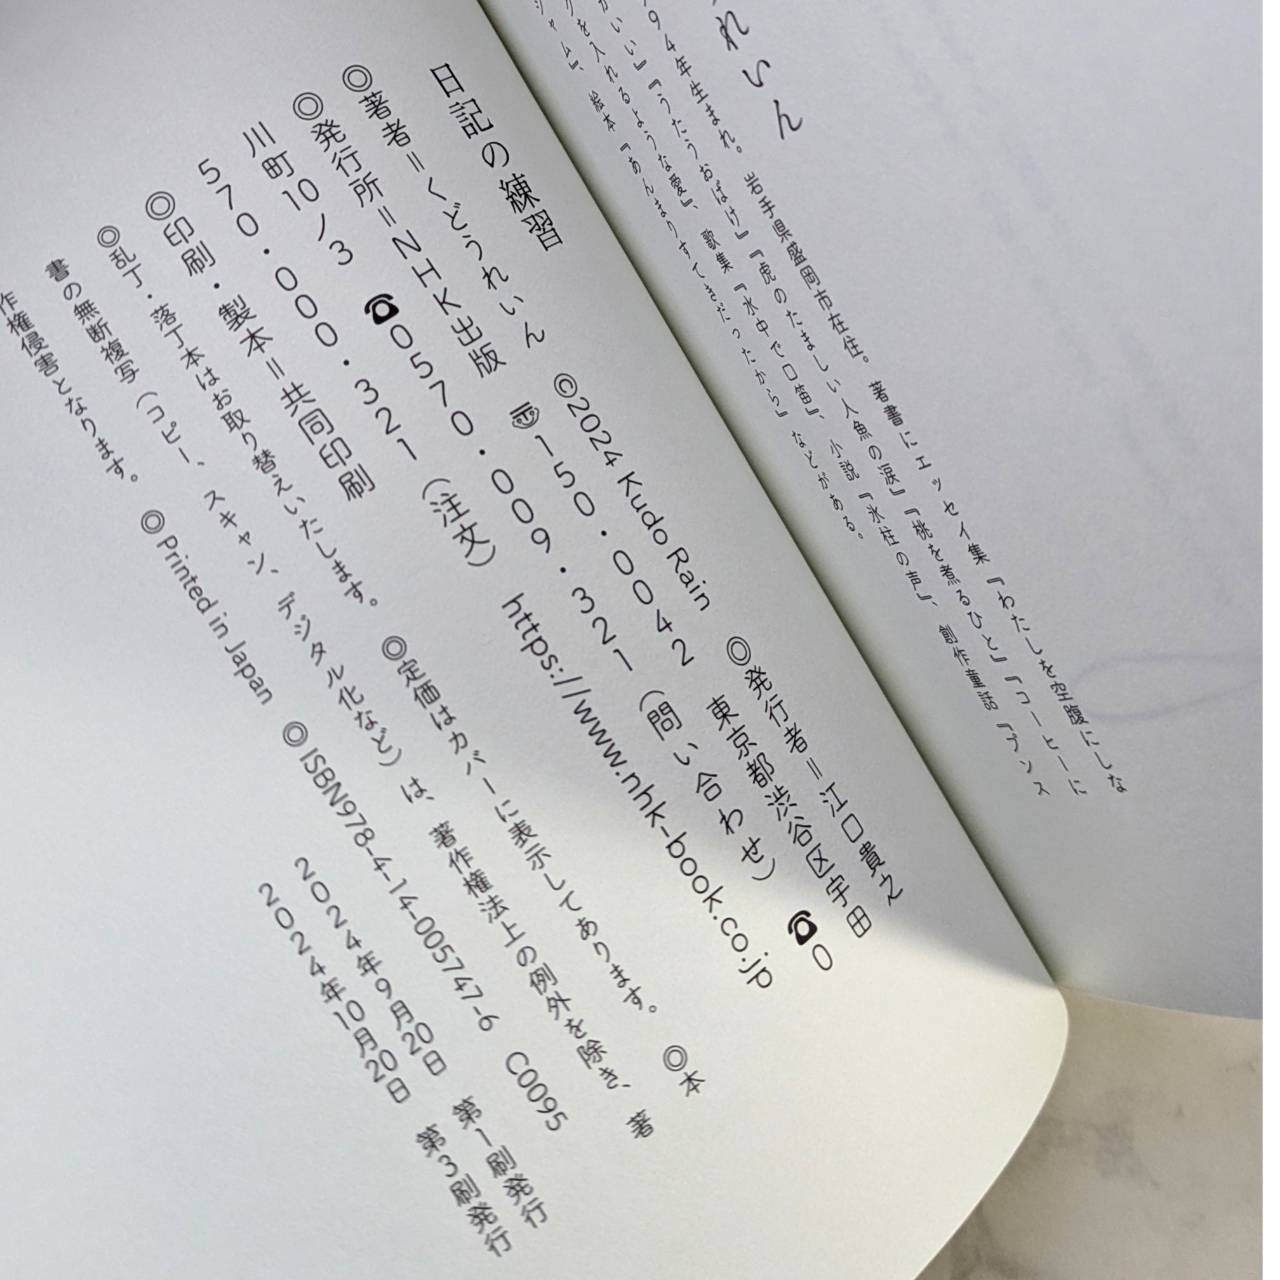 れいん
94年生まれ。岩手県盛岡市在住。著書にエッセイ集『わたしを空腹にしな
がいい』『うたうおばけ』『虎のたましい人魚の涙』『桃を煮るひと』『コーヒーに
クを入れるような愛』、歌集『水中で口笛』、小説『氷柱の声』、創作童話『プンス
ジャム』、絵本『あんまりすてきだったから』などがある。
日記の練習
◎著者=くどうれいん ©2024 Kudo Rain ◎発行者=江口貴之
◎発行所=NHK出版 〠150・0042 東京都渋谷区宇田
川町10ノ3 ☎0570・009・321（問い合わせ） ☎0
570・000・321（注文） https://www.nhk-book.co.jp
◎印刷・製本=共同印刷
◎乱丁・落丁本はお取り替えいたします。 ◎定価はカバーに表示してあります。 ◎本
書の無断複写（コピー、スキャン、デジタル化など）は、著作権法上の例外を除き、著
作権侵害となります。 ◎Printed in Japan ◎ISBN978-4-14-005747-6 C0095
2024年9月20日 第1刷発行
2024年10月20日 第3刷発行